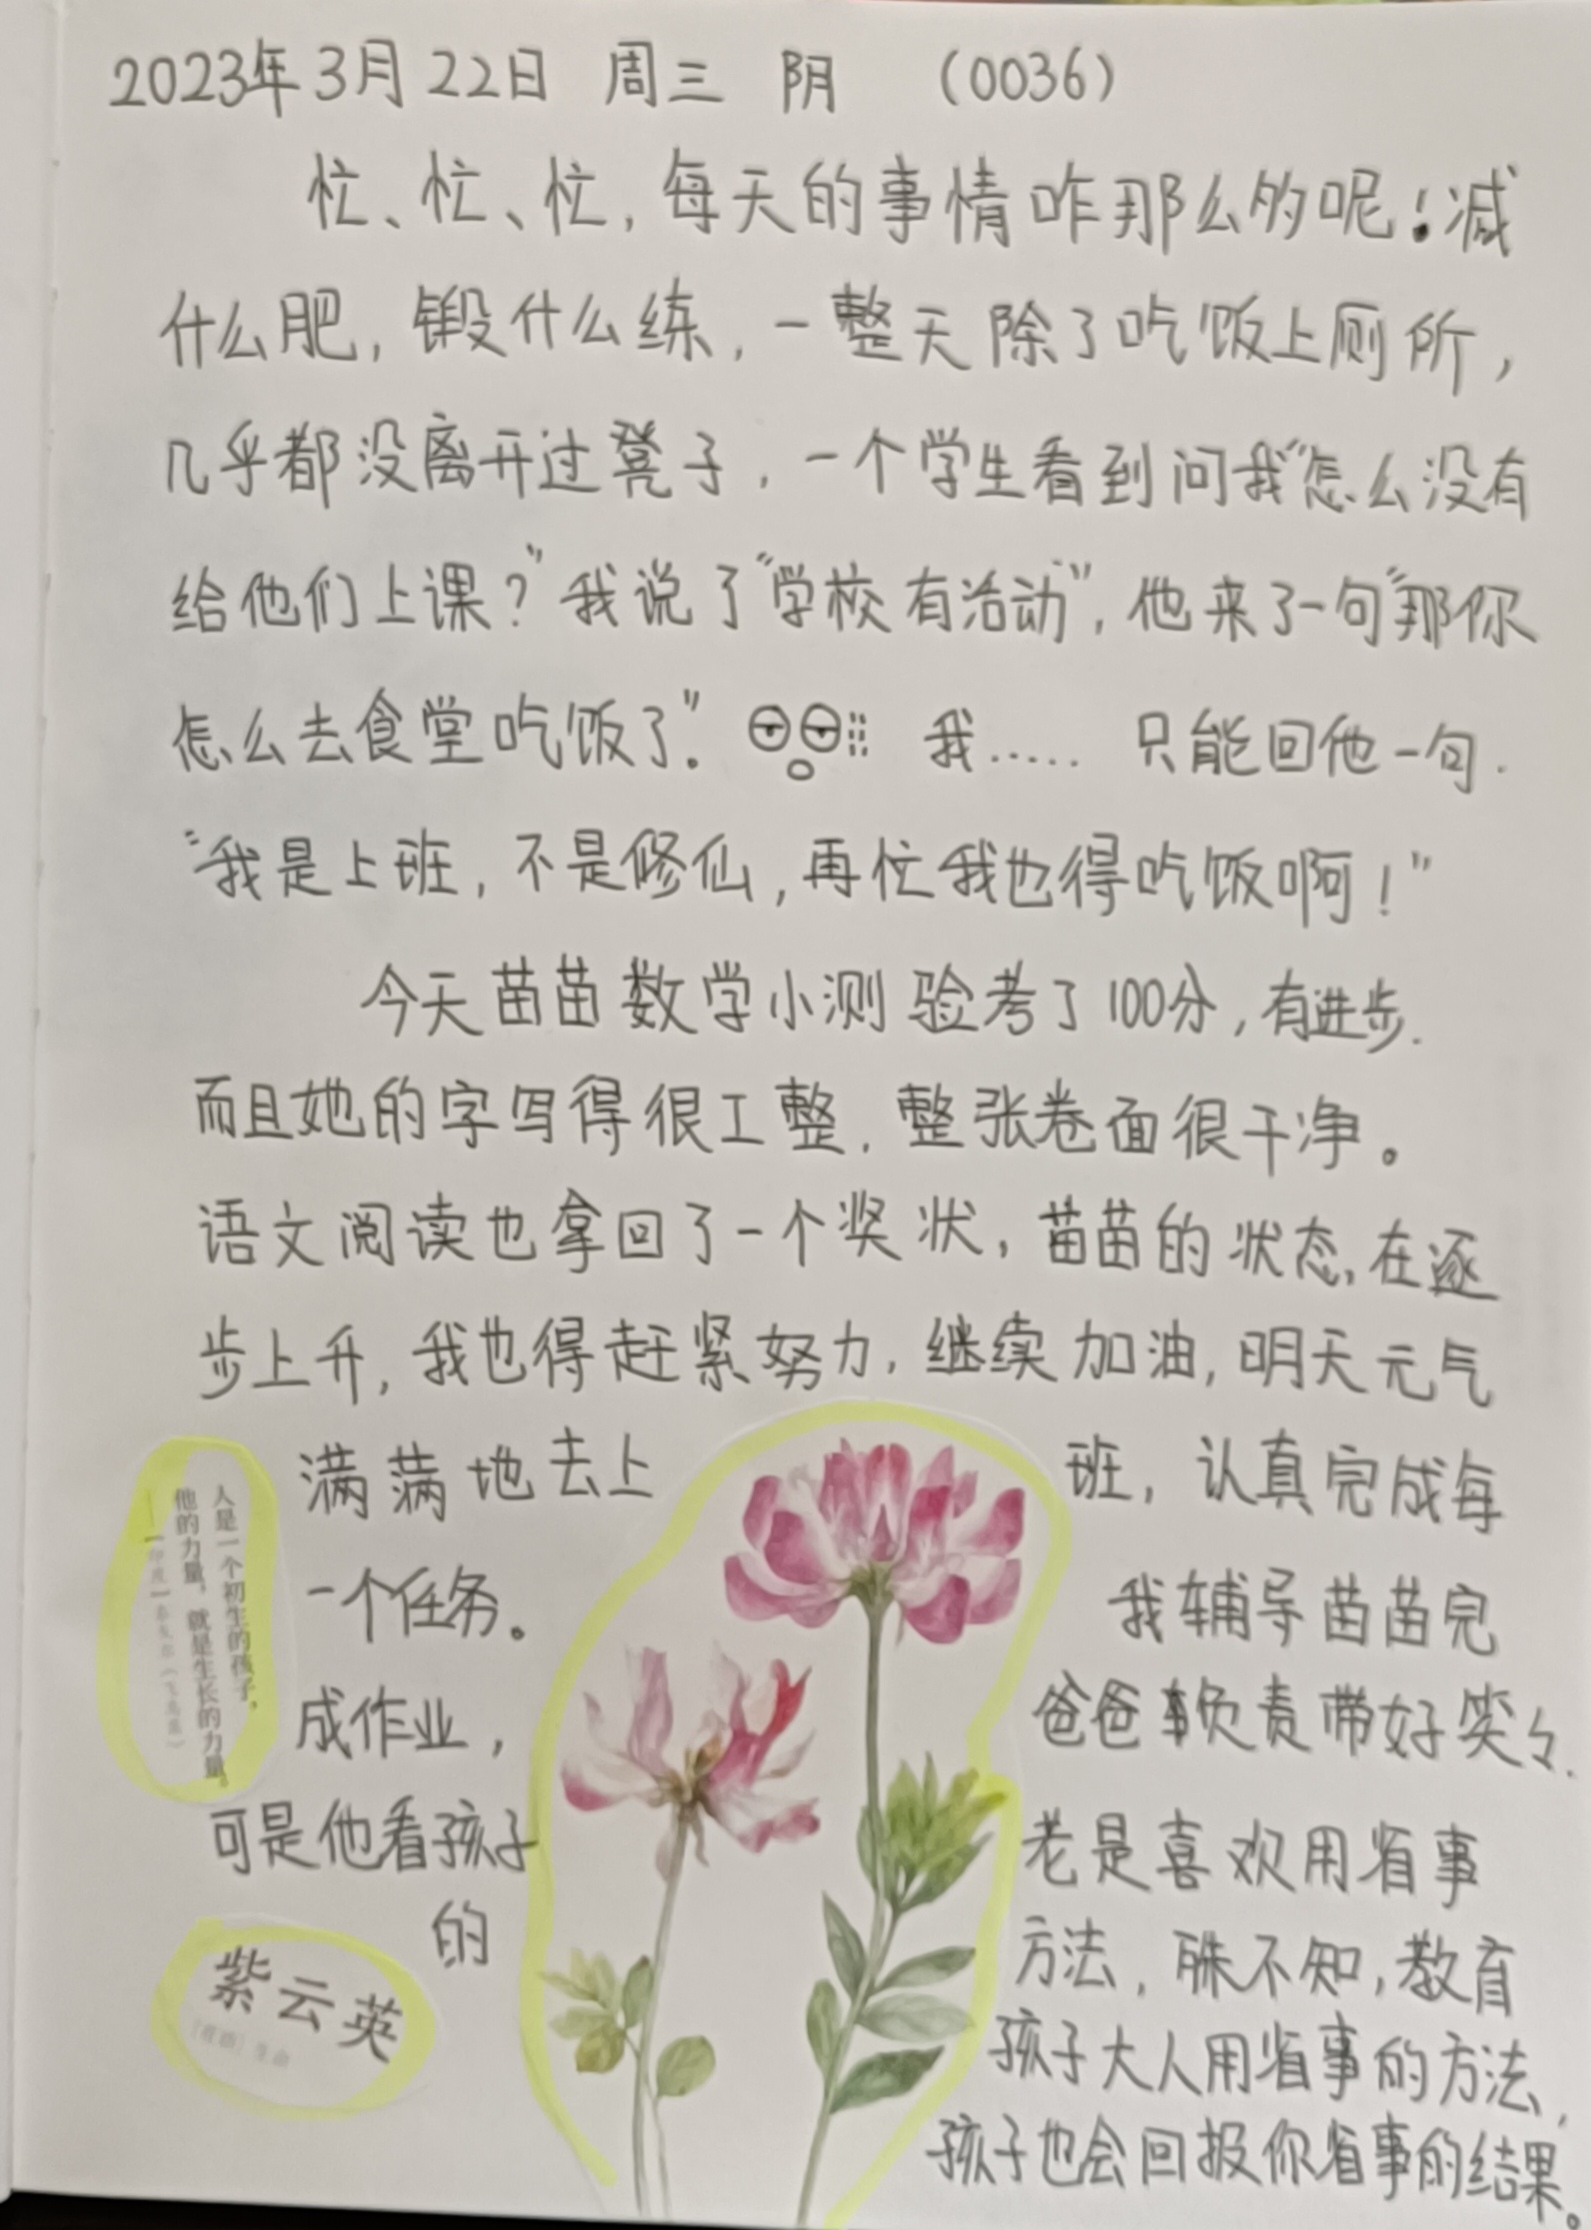 2023年3月22日 周三 阴 (0036)
忙、忙、忙,每天的事情咋那么的呢!减
什么肥,锻什么练,一整天除了吃饭上厕所,
几乎都没离开过凳子,一个学生看到问我"怎么没有
给他们上课?"我说了"学校有活动",他来了一句"那你
怎么去食堂吃饭了"。 我…… 只能回他一句.
"我是上班,不是修仙,再忙我也得吃饭啊!"
今天苗苗数学小测验考了100分,有进步.
而且她的字写得很工整,整张卷面很干净。
语文阅读也拿回了一个奖状,苗苗的状态,在逐
步上升,我也得赶紧努力,继续加油,明天元气
满满地去上班,认真完成每
一个任务。 我辅导苗苗完
成作业, 爸爸事负责带好笑々.
可是他看孩子老是喜欢用省事
的方法,殊不知,教育
孩子大人用省事的方法,
孩子也会回报你省事的结果。
人是一个初生的孩子,
他的力量,就是生长的力量。
紫云英